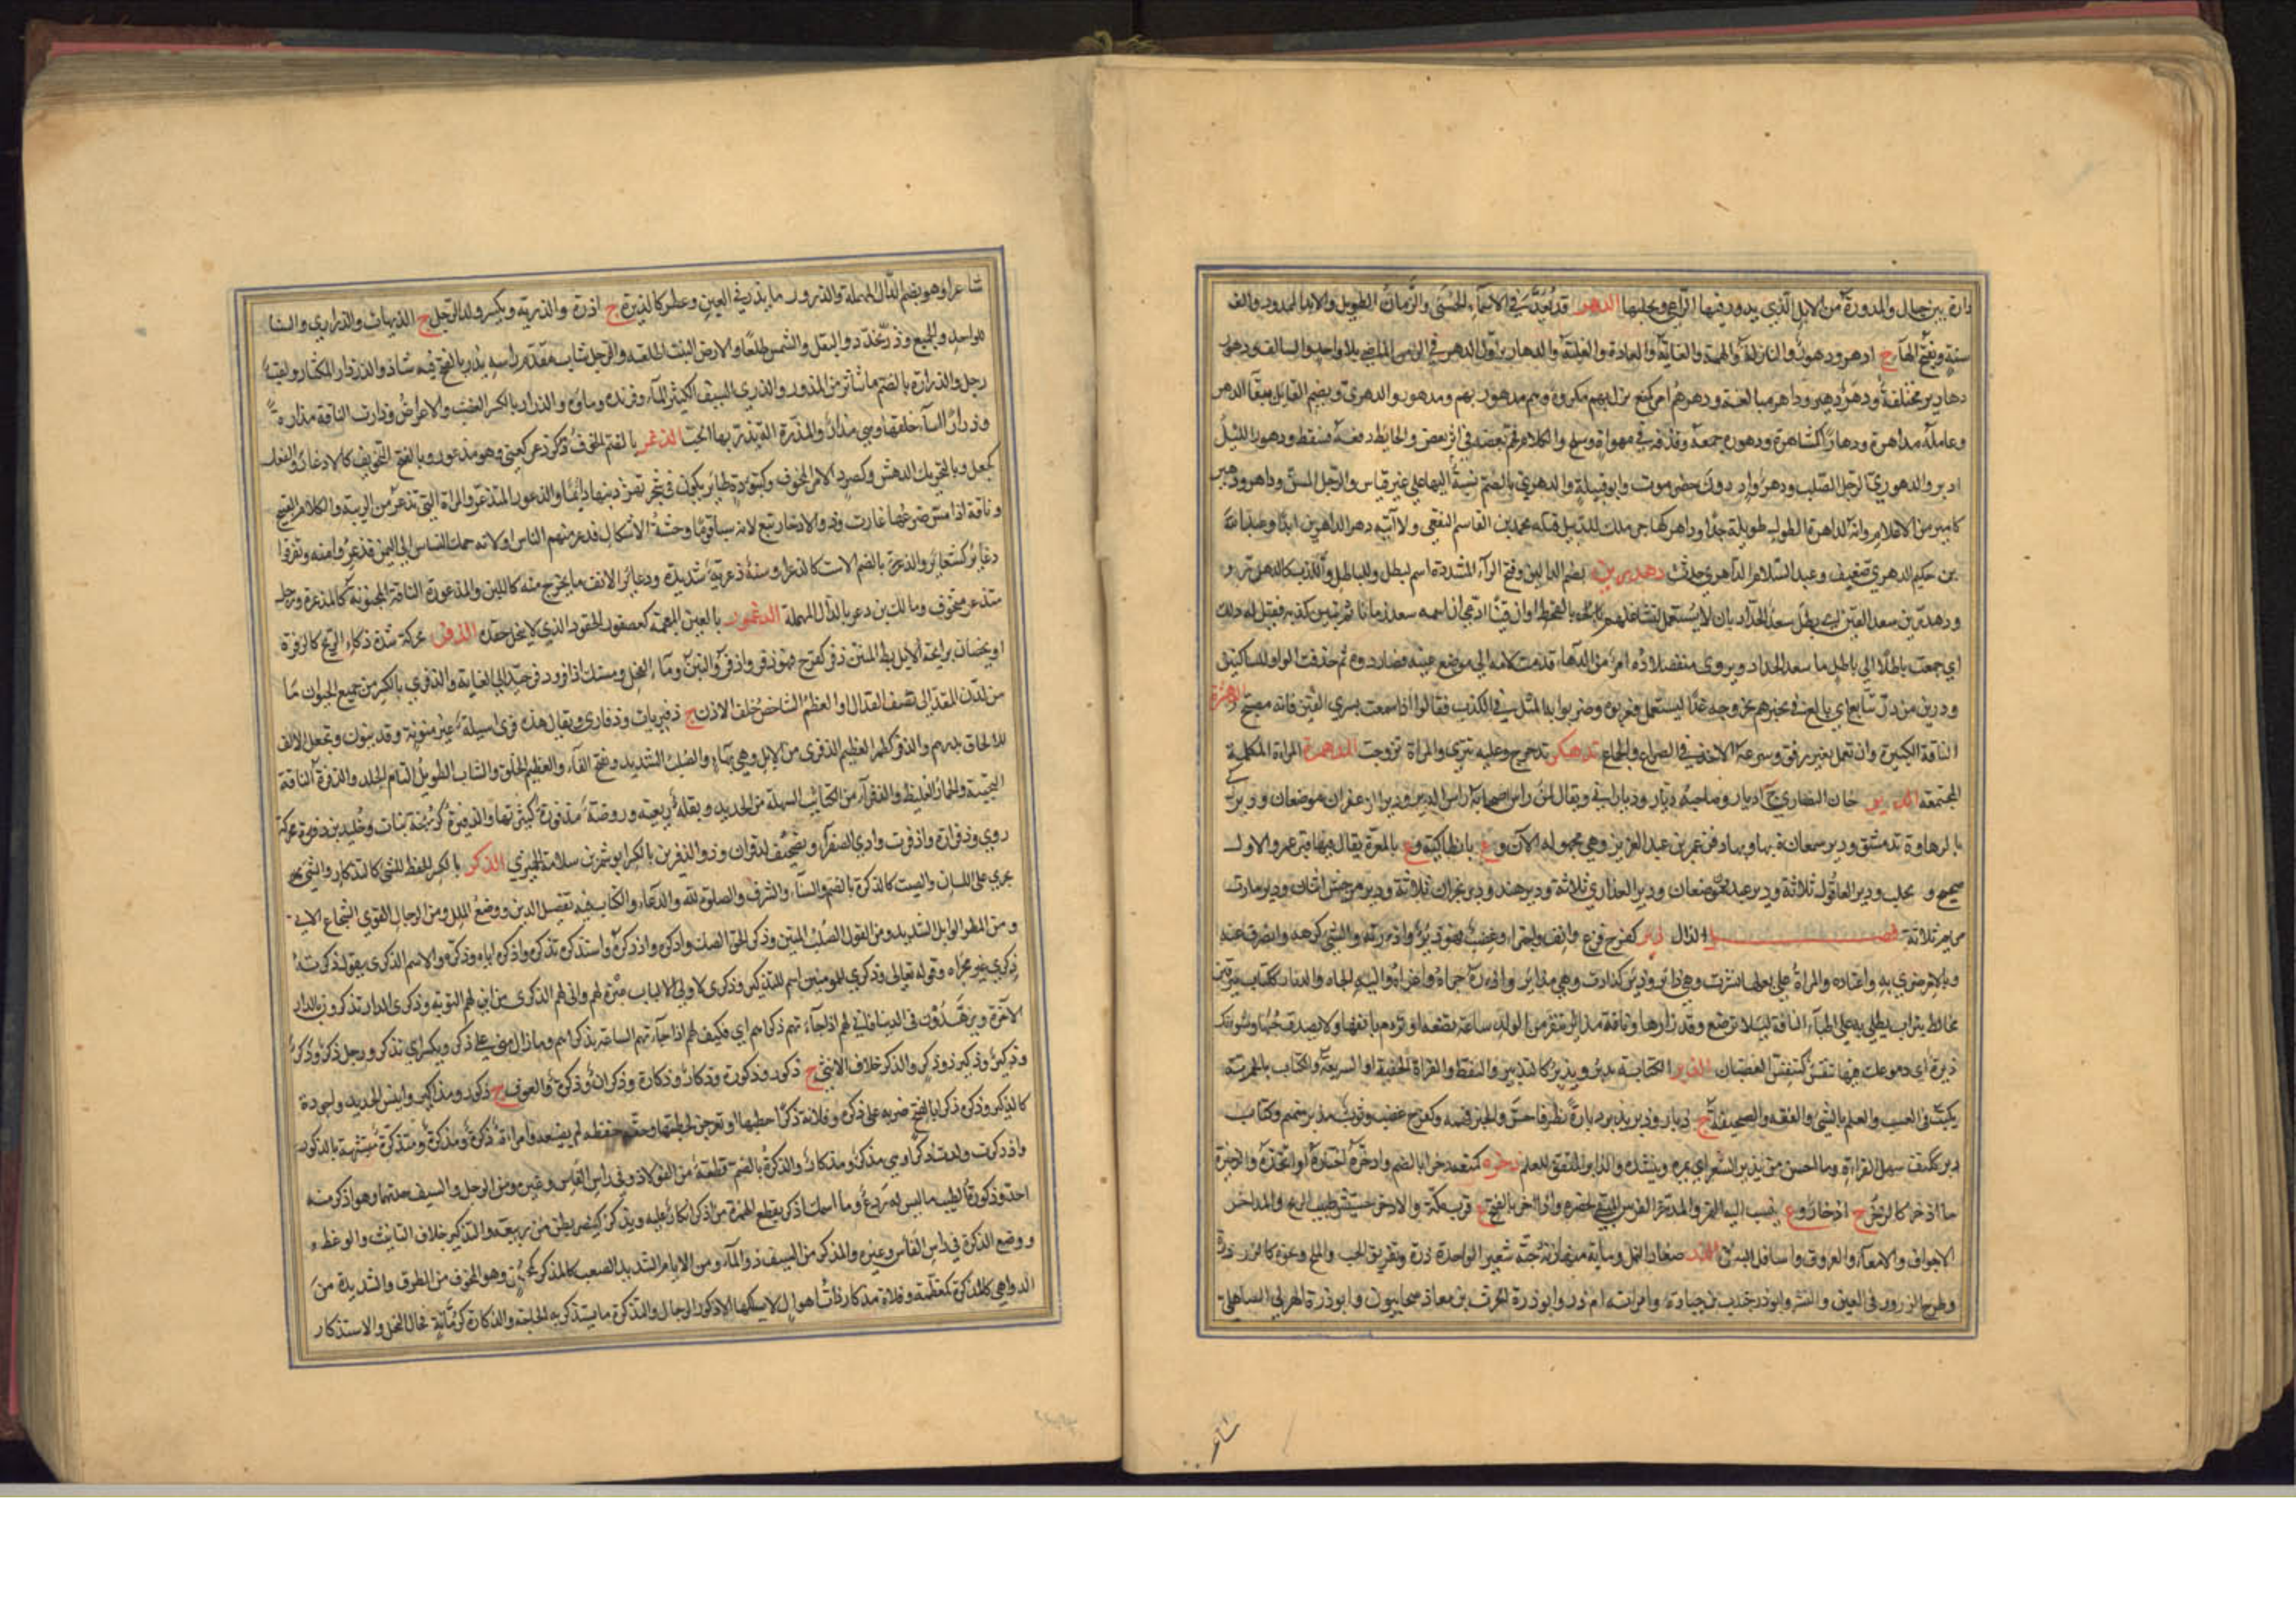 دارة بين جبال والمدورة من الابل الذي يدور فيها الراعي ويحلبها الدهر قد يُعَدُّ في الاسماء الحسنى والزمان الطويل والابد الممدود والف
سنة وتفتح الهاء ج ادهر ودهور والنازلة والهمة والغاية والعادة والغلبة والدهارير اول الدهر في الزمن الماضي بلا واحد والسالف ودهور
دهارير مختلفة ودهر دهير وداهر مبالغة ودهرهم امر كمنع نزل بهم مكروه وهم مدهور بهم ومدهورون والدهري ويضم القايل ببقاء الدهر
وعامله مداهرة ودهارا كمشاهرة ودهوره جمعه وقذفه في مهواة وسلح والكلام فخم بعضه في اثر بعض والحايط دفعه فسقط ودهور الليل
ادبر والدهوري الرجل الصلب ودهر واد دون حضرموت وابو قبيلة والدهري بالضم نسبة اليها على غير قياس والرجل المسن وداهر ودهير
من الاعلام وانه لداهرة الطول طويله جدا وداهر كهاجر ملك للديبل قتله محمد بن القاسم الثقفي ولا آتيه دهر الداهرين ابدا وعبد الله
بن حكيم الدهري ضعيف وعبد السلام الداهري حدث دهدرين بضم الدالين وفتح الراء المشددة اسم لبطل وللباطل وللكذب كالدهدر و
ودهدرين سعد القين اي بطل سعد الحداد بان لا يستعمل لتشاغلهم بالقحط او ان قينا ادعى ان اسمه سعد زمانا ثم تبين كذبه فقيل له ذلك
اي جمعت باطلا الى باطل يا سعد الحداد ويروى منفصلا ده امر من الدهاء قدمت لامه الى موضع عينه فصار دوه ثم حذفت الواو للساكنين
ودرين من در تتابع اي بالغ في
الناقة الكبيرة وان تعمل بغير رفق وسرعة الاخذ في الصراع والجماع تدهكر تدحرج وعليه تنزى والمراة ترجرجت المدهمرة المراة المكتلة
المجتمعة الدير خان النصارى ج اديار وصاحبه ديار وديراني ويقال لمن راس اصحابه راس الدير ودير الزعفران موضعان ودير
بدمشق ودير سمعان بها وبها دفن عمر بن عبد العزيز وهي مجهولة الآن و ع بانطاكية و ع بالمعرة يقال فيها قبر عمر والاول
صحيح و بحلب ودير العاقول ثلاثة ودير عبدون موضعان ودير العذارى ثلاثة ودير هند ودير نجران ثلاثة
ثلاثة فصل الذال ذئر كفرح فزع وانف واجترا وغضب فهو ذئر واذأرته والشيء كرهه وانصرف عنه
وبالامر ضري به واعتاده والمراة على بعلها نشزت وهي ذائر وذئر كذارت وهي مذائر واذأره جراه واغراه واليه الجاه والذئار ككتاب سرقين
مختلط بتراب يطلى به على اطباء الناقة ليلا ترضع وقد ذارها وناقة مذائر تنفر من الولد ساعة تضعه او تراأم بانفها ولا يصدق حبها
الذبر الكتابة يذبر ويذبر كالتذبير والنقط والقراءة الخفية او السريعة والكتاب بالحميرية
يكتب في العسيب والعلم بالشيء والفقه والصحيفة ج ذبار وذبر يذبر ذبارة نظر فاحسن والخبر فهمه وكفرح غضب وثوب مذبر منمنم وكتاب
ذبر ككتف سهل القراءة وما احسن ما يذبر الشعر اي يمره وينشده والذابر المتقن للعلم ذخره كمنعه ذخرا بالضم واذخره اختاره او اتخذه والذخيرة
ما اذخر كالذخر ج اذخار و ع ينسب اليه التمر والمدخر الفرس المبقي لحضره واذاخر بالفتح ع قرب مكة والاذخر حشيش طيب الريح والمذاخر
الاجواف والامعاء والعروق واسافل البطن الذر صغار النمل وماية منها زنة حبة شعير الواحدة ذرة وتفريق الحب والملح ونحوه كالذرذرة
وطرح الذرور في العين والنشر وابو ذر جندب بن جنادة وامراته ام ذر وابو ذرة الحرث بن معاذ صحابيون وابو ذرة الهذلي الصاهلي
شاعر او هو بضم الدال المهملة والذرور ما يذر في العين وعطر كالذريرة ج اذرة والذرية ويكسر ولد الرجل ج الذريات والذراري والنساء
للواحد والجميع وذر تخدد والبقل والشمس طلعا والارض النبت اطلعته والرجل شاب مقدم راسه يذر بالفتح فيه شاذ والذرذار المكثار ولقب
رجل والذرارة بالضم ما تناثر من المذرور والذري السيف الكثير الماء وفرنده وماؤه والذرار بالكسر الغضب والاعراض وذارت الناقة مذارة
وذرارا ساء خلقها وهي مذار والمذرة آلة يذر بها الحب الذعر بالضم الخوف ذعر كعني وهو مذعور وبالفتح التخويف كالاذعار والفعل
كجعل وبالتحريك الدهش وكصرد الامر المخوف وكتؤدة طائر يكون في الشجر تهز ذنبها دائما والذعور المتذعر والمراة التي تذعر من الريبة والكلام القبيح
وناقة اذا مس ضرعها غارت وذو الاذعار تبع لانه سبا قوما وحشة الاشكال فذعر منهم الناس او لانه حمل النسناس الى اليمن فذعروا منه وتفرقوا
ذعارير كشعارير والذعرة بالضم الاست كالذعراء وسنة ذعرية شديدة وذعارير الانف ما يخرج منه كاللبن والمذعورة الناقة المجنونة كالمذعرة ورجل
متذعر متخوف ومالك بن دعر بالدال المهملة الذغمور بالغين المعجمة كعصفور الحقود الذي لا ينحل حقده الذفر محركة شدة ذكاء الريح كالذفرة
او يخصان برايحة الابط المنتن ذفر كفرح فهو ذفر واذفر والنتن وماء الفحل ومسك اذفر وذفر جيد الى الغاية والذفرى بالكسر من جميع الحيوان ما
من لدن المقذ الى نصف القذال او العظم الشاخص خلف الاذن ج ذفريات وذفارى ويقال هذه ذفرى اسيلة غير منونة وقد ينون وتجعل الالف
للالحاق بدرهم والذفر كطمر العظيم الذفرى من الابل وهي بهاء والصلب الشديد وتفتح الفاء والعظيم الخلق والشاب الطويل التام الجلد والذفرة الناقة
النجيبة والحمار الغليظ والذفراء من الكتايب السهكة من الحديد وبقلة ربعية وروضة مذفورة كثيرتها والذفرة كزنخة نبات وخليد بن ذفرة محركة
روى وذفران واد قرب وادي الصفراء وذو الذفرين بالكسر ابو شمر بن سلامة الحميري الذكر بالكسر الحفظ للشيء كالتذكار والشيء
يجري على اللسان والصيت كالذكرة بالضم والثناء والشرف والصلوة لله والدعاء والكتاب فيه تفصيل الدين ووضع الملل ومن الرجال القوي الشجاع الابي
ومن المطر الوابل الشديد ومن القول الصلب المتين وذكر الحق الصك وادكره واذدكره واستذكره تذكره واذكره اياه وذكره والاسم الذكرى يقول ذكرته
ذكرى غير مجراة وقوله تعالى وذكرى للمومنين اسم للتذكير وذكرى لاولي الالباب عبرة لهم وانى لهم الذكرى من اين لهم التوبة وذكرى الدار يذكرون بالدار
الآخرة ويزهدون في الدنيا فانى لهم اذا جاءتهم ذكراهم اي فكيف لهم اذا جاءتهم الساعة بذكراهم وما زال مني على ذكر ويكسر اي تذكر ورجل ذكر وذكر
وذكير وذكير ذو ذكر والذكر خلاف الانثى ج ذكور وذكورة وذكار وذكارة وذكران وذكرة والعوف ج ذكور ومذاكير وايبس الحديد واجوده
كالذكير وذكره ذكرا بالفتح ضربه على ذكره وفلانة ذكرا خطبها او تعرض لخطبتها وحقه حفظه لم يضيعه وامراة ذكرة ومذكرة ومتذكرة متشبهة بالذكور
واذكرت ولدت ذكرا وهي مذكر ومذكار والذكرة بالضم قطعة من الفولاذ في راس الفاس وغيره ومن الرجل والسيف حدتهما وهو اذكر منه
احد وذكورة الطيب ما ليس له ردع وما اسمك اذكر بقطع الهمزة من اذكر انكار عليه ويذكر كينصر بطن من ربيعة والتذكير خلاف التانيث والوعظ
ووضع الذكرة في راس الفاس وغيره والمذكر من السيف ذو الماء ومن الايام الشديد الصعب كالمذكر كمحسن وهو المخوف من الطرق والشديدة من
الدواهي كالمذكرة كمعظمة وفلاة مذكار ذات اهوال لا يسلكها الا ذكور الرجال والتذكرة ما يستذكر به الحاجة والذكارة كرمانة فحال النخل والاستذكار